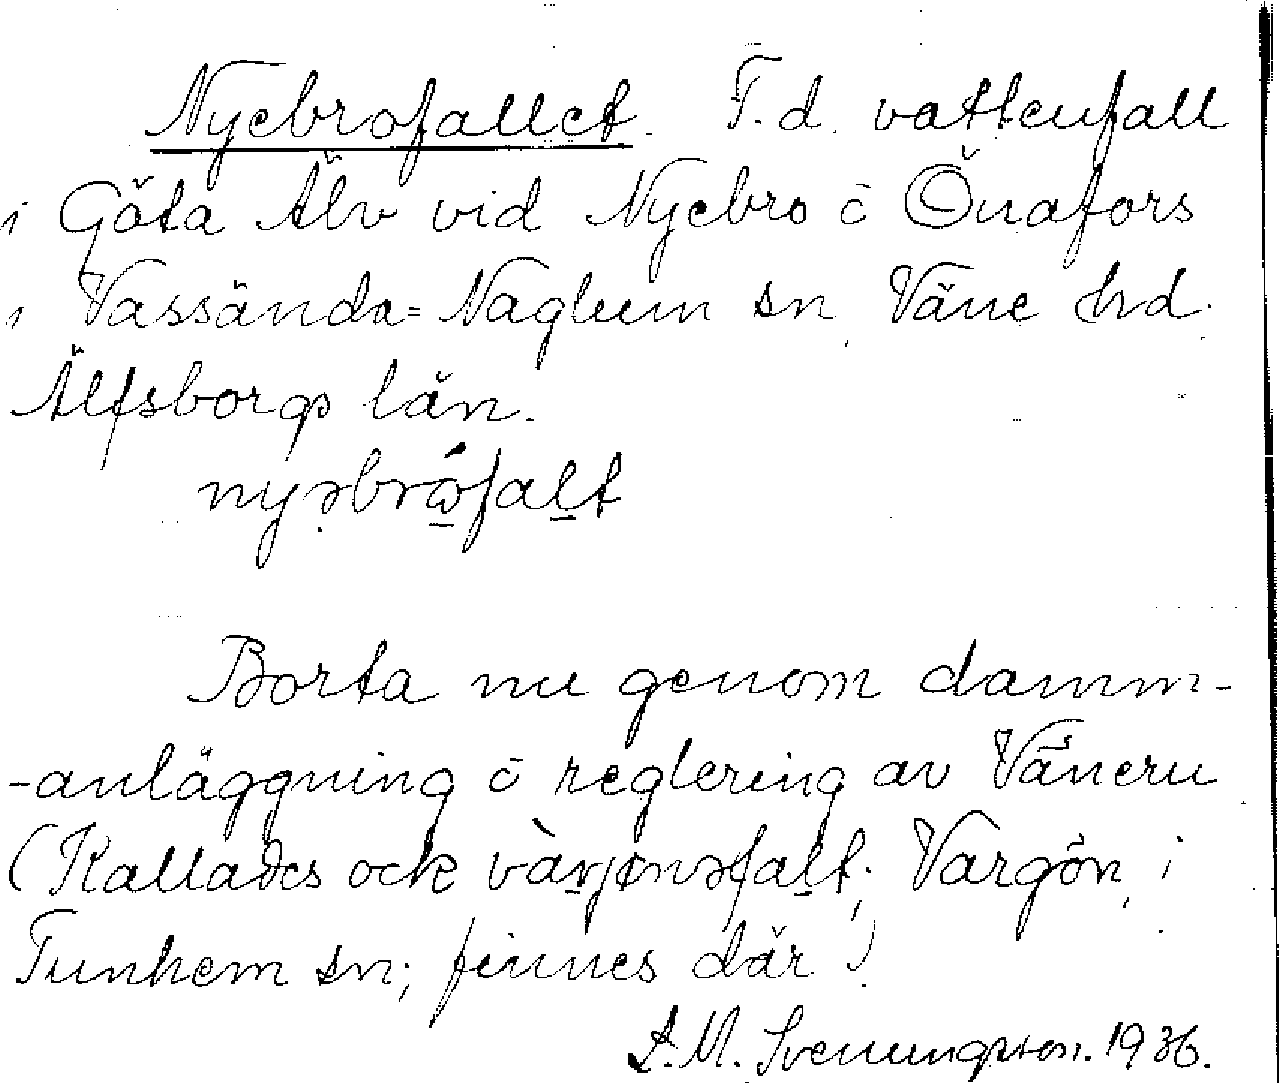 Nyebrofallet. F.d. vattenfall
i Göta Älv vid Nyebro o Önafors
i Vassända=Naglum sn, Väne hrd.
Älfsborgs län.
nyəbrώ̲fal̲t
Borta nu genom damm-
-anläggning o reglering av Vänern
(Kallades ock Vargön, i
Tunhem sn; finnes där)
S.M. Svenungsson. 1936.